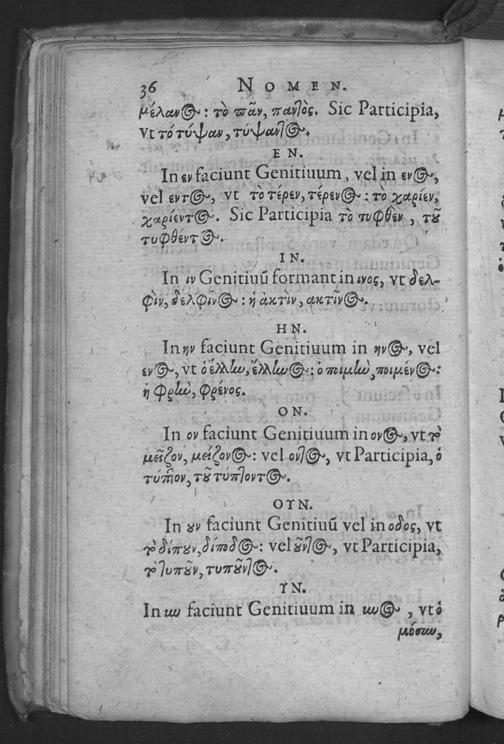 36 NOMEN.
μέλανος: τὸ πᾶν, παντος. Sic Participia,
vt τὸ τύψαν, τύψαντος.
EN.
In εν faciunt Genitiuum, vel in ενος,
vel εντος, vt τὸ τέρεν, τέρενος: τὸ χαρίεν,
χαρίεντος. Sic Participia τὸ τυφθὲν, τοῦ
τυφθέντος.
IN.
In ιν Genitiuū formant in ινος, vt δελ-
φὶν, δελφῖνος: ἡ ἀκτὶν, ακτῖνος.
HN.
In ην faciunt Genitiuum in ηνος, vel
ενος, vt ὁ ἕλλην, ἕλληνος: ὁ ποιμὴν, ποιμένος:
ἡ φρὴν, φρένος.
ON.
In ον faciunt Genitiuum in ονος, vt τὸ
μεῖζον, μείζονος: vel οντος, vt Participia, ὁ
τύπτον, τοῦ τύπτοντος.
OYN.
In ουν faciunt Genitiuū vel in οδος, vt
τὸ δίπουν, δίποδος: vel οῦντος, vt Participia,
τὸ τυποῦν, τυποῦντος.
YN.
In υν faciunt Genitiuum in υνος, vt ὁ
μόσυν,